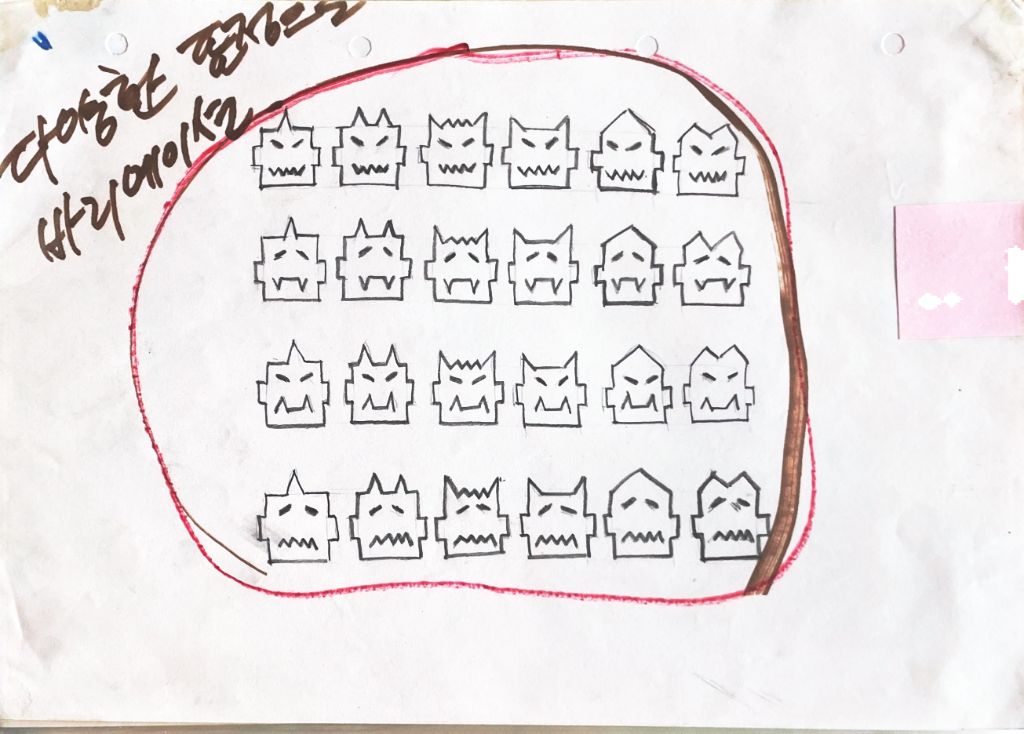 다양한 표정으로
바리에이션